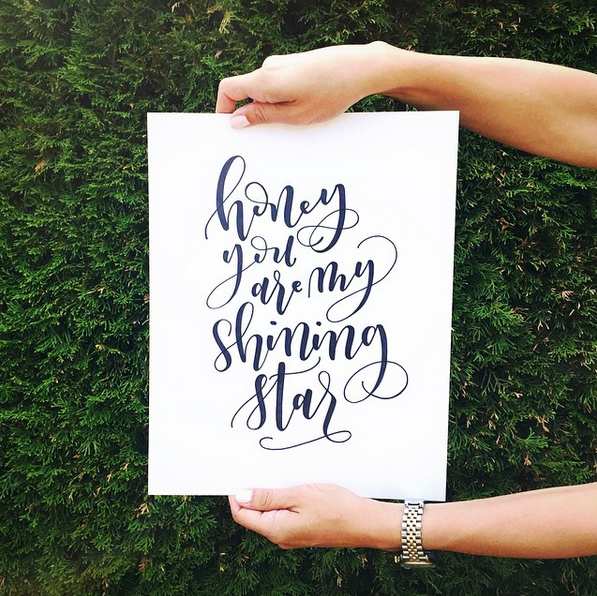 honey
you
are my
shining
star